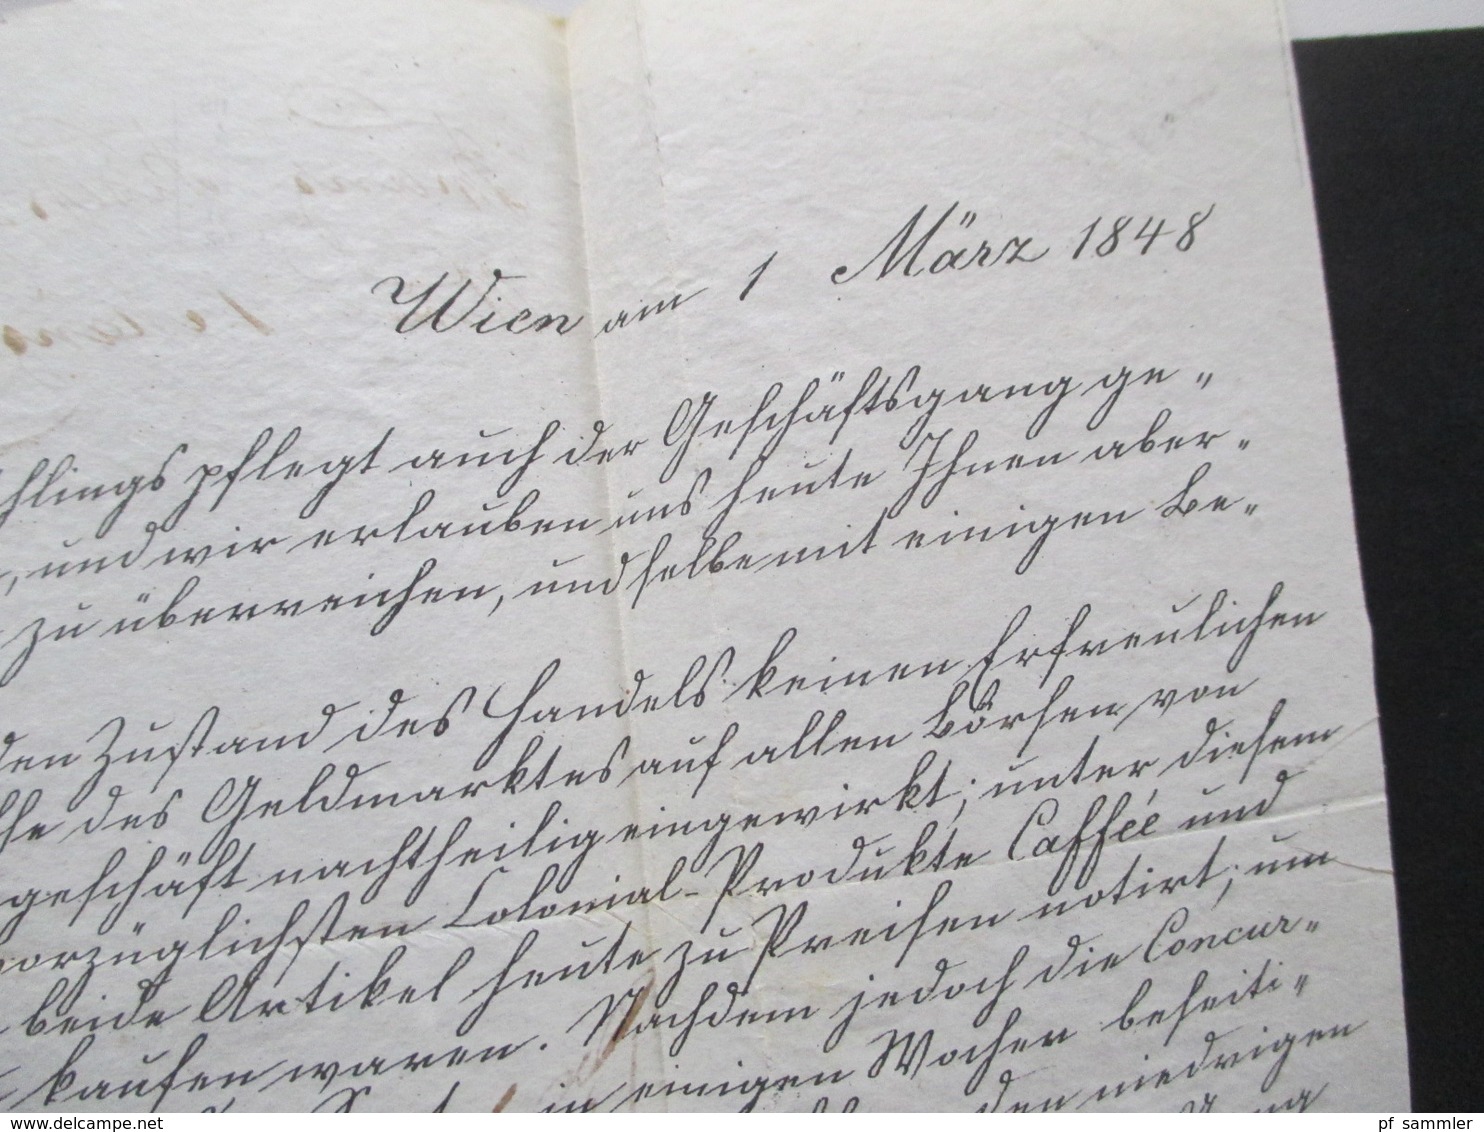 Wien am 1 März 1848
hlings pflegt auch der Geschäftsgang ge"
, und wir erlauben uns heute Ihnen aber"
zu überreichen, und selbe mit einigen Be"
den Zustand des Handels keinen Erfreulichen
des Geldmarktes auf allen Börsen von
geschäft nachtheilig eingewirkt; unter diesem
vorzüglichsten Colonial-Produkte Caffée und
beide Artikel heute zu Preisen notirt; um
kaufen waren. Nachdem jedoch die Concur"
in einigen Wochen beseiti"
den niedrigen
www.delcampe.net
pf_sammler